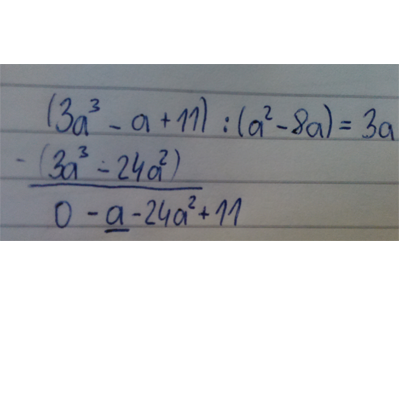 (3a³ - a + 11) : (a² - 8a) = 3a
- (3a³ - 24a²)
0 - a - 24a² + 11